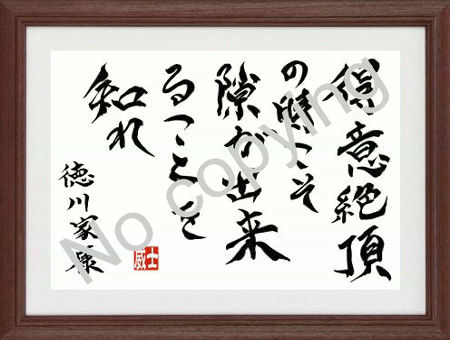 得意絶頂
の時こそ
隙が出来
ることを
知れ
徳川家康
威士
No copying